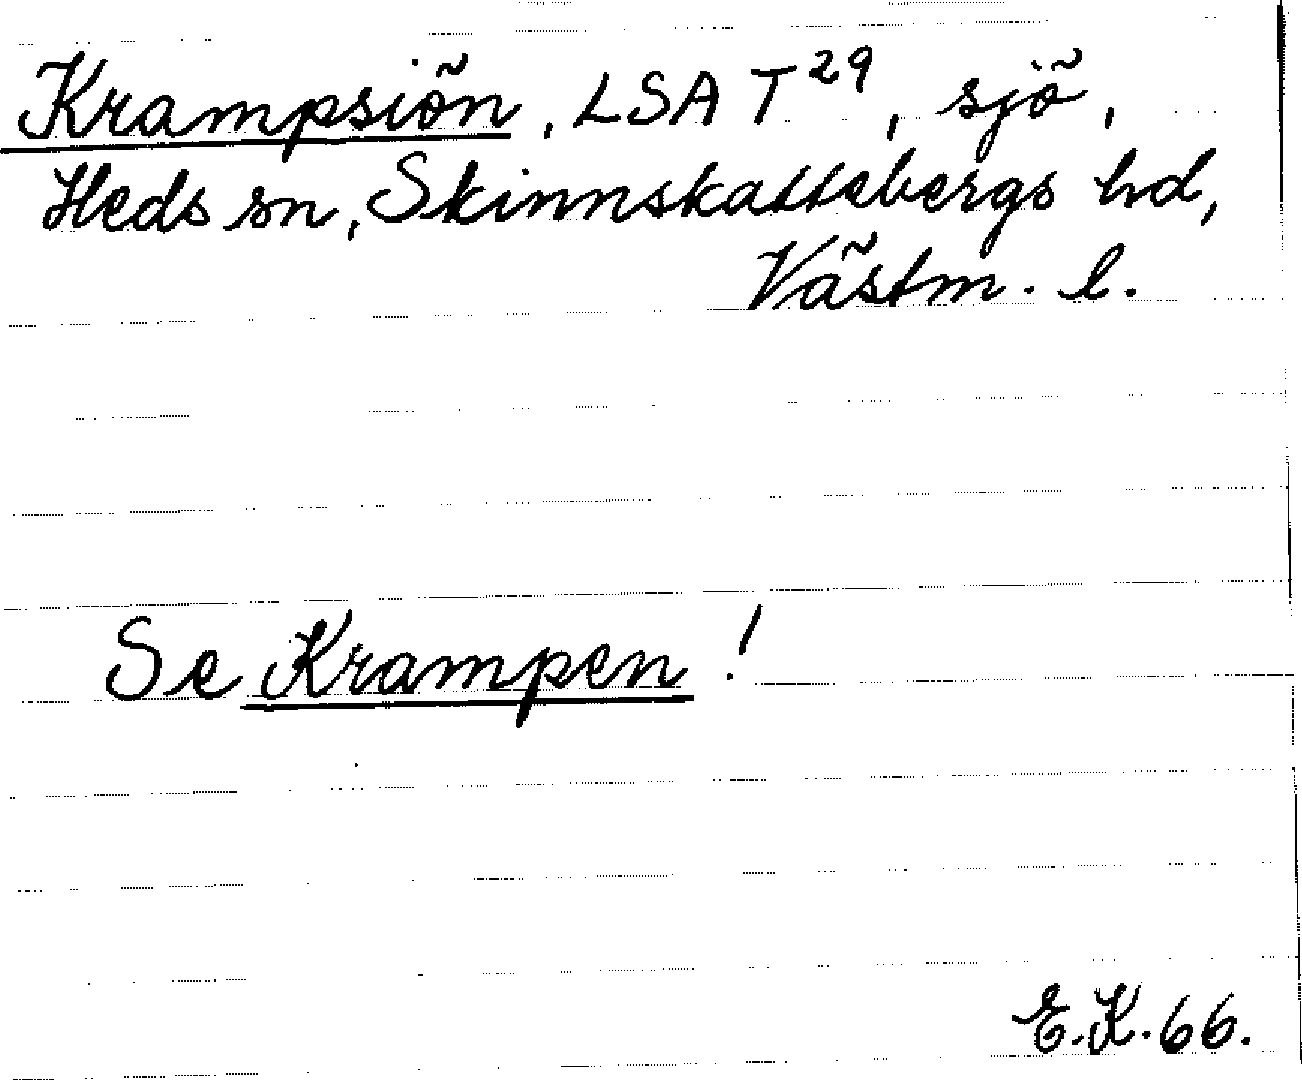 Krampsiön, LSA T²⁹, sjö,
Heds sn, Skinnskattebergs hd,
Västm. l.
Se Krampen!
E.K. 66.